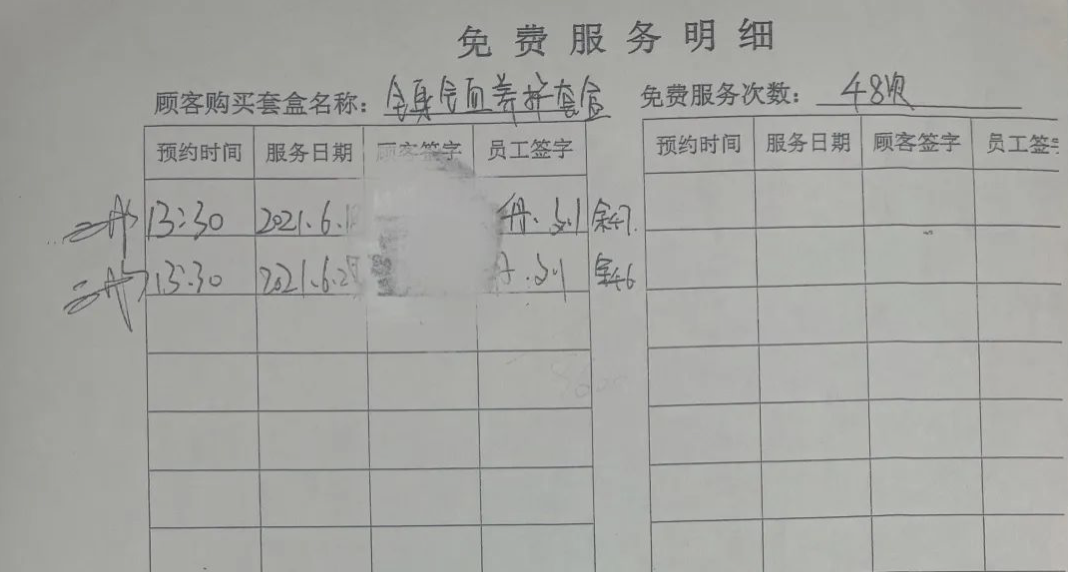 免费服务明细
顾客购买套盒名称：全身气血养护套盒 免费服务次数：48次
预约时间 服务日期 顾客签字 员工签字 预约时间 服务日期 顾客签字 员工签
13:30 2021.6. 丹.刘 余47.
13:30 2021.6.2 丹.刘 余46